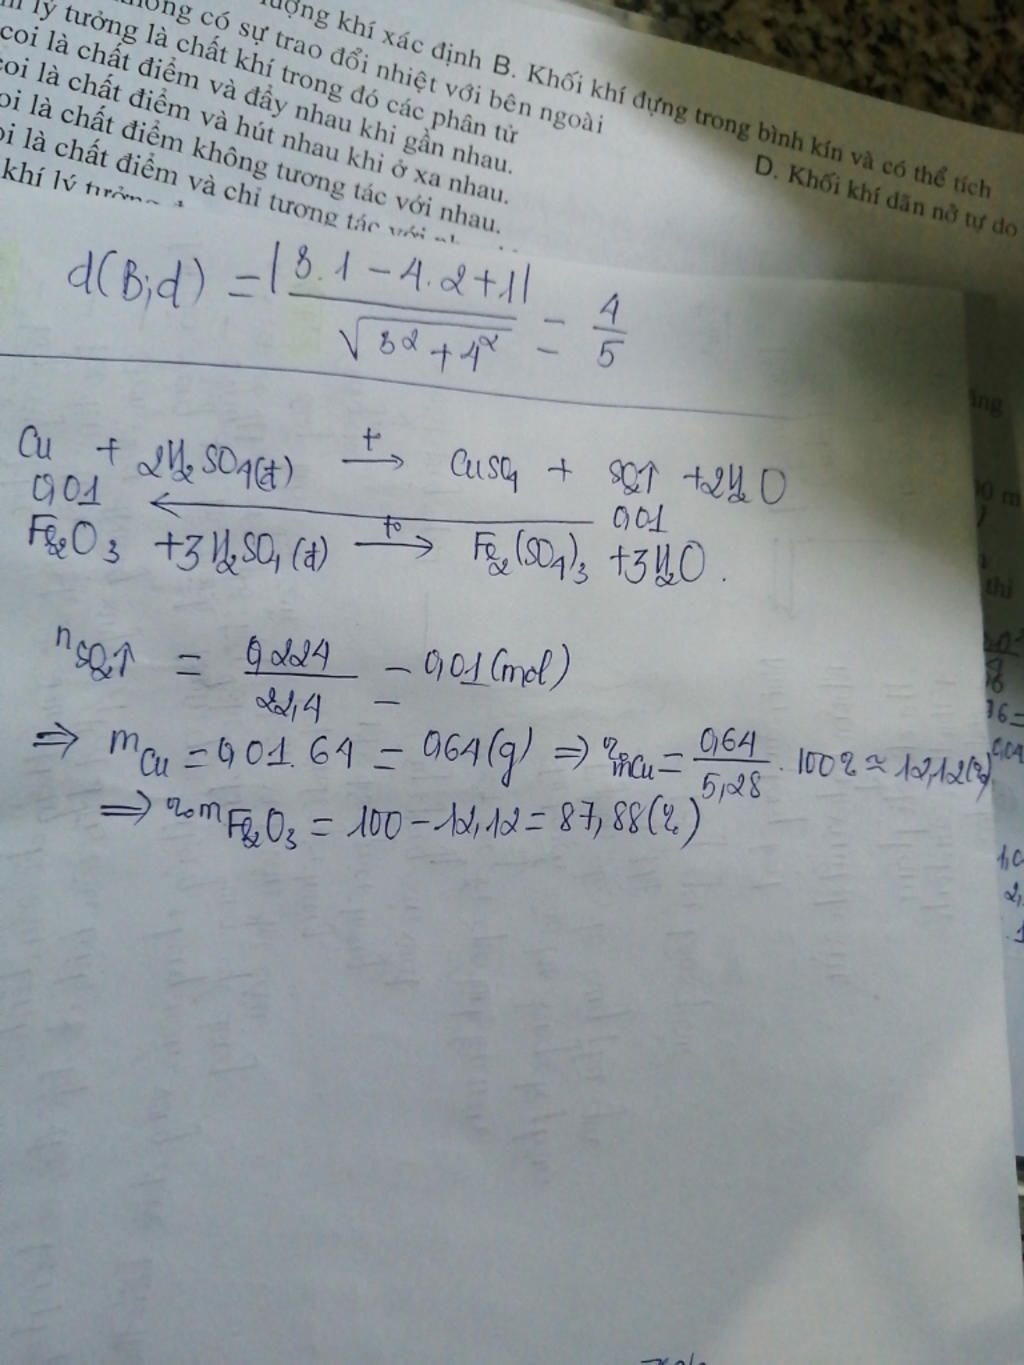 lượng khí xác định B. Khối khí đựng trong bình kín và có thể tích
không có sự trao đổi nhiệt với bên ngoài
D. Khối khí dãn nở tự do
lý tưởng là chất khí trong đó các phân tử
coi là chất điểm và đẩy nhau khi gần nhau.
coi là chất điểm và hút nhau khi ở xa nhau.
là chất điểm không tương tác với nhau.
là chất điểm và chỉ tương tác với
khí lý tưởng
d(B;d) = |3.1 - 4.2 + 1| / √(3² + 4²) = 4/5
Cu + 2H₂SO₄(đ) t° → CuSO₄ + SO₂↑ + 2H₂O
0,01 ← 0,01
Fe₂O₃ + 3H₂SO₄(đ) t° → Fe₂(SO₄)₃ + 3H₂O.
nSO₂↑ = 0,224 / 22,4 = 0,01 (mol)
⇒ mCu = 0,01.64 = 0,64(g) ⇒ %mCu = 0,64 / 5,28 . 100% ≈ 12,12(%)
⇒ %mFe₂O₃ = 100 - 12,12 = 87,88(%)